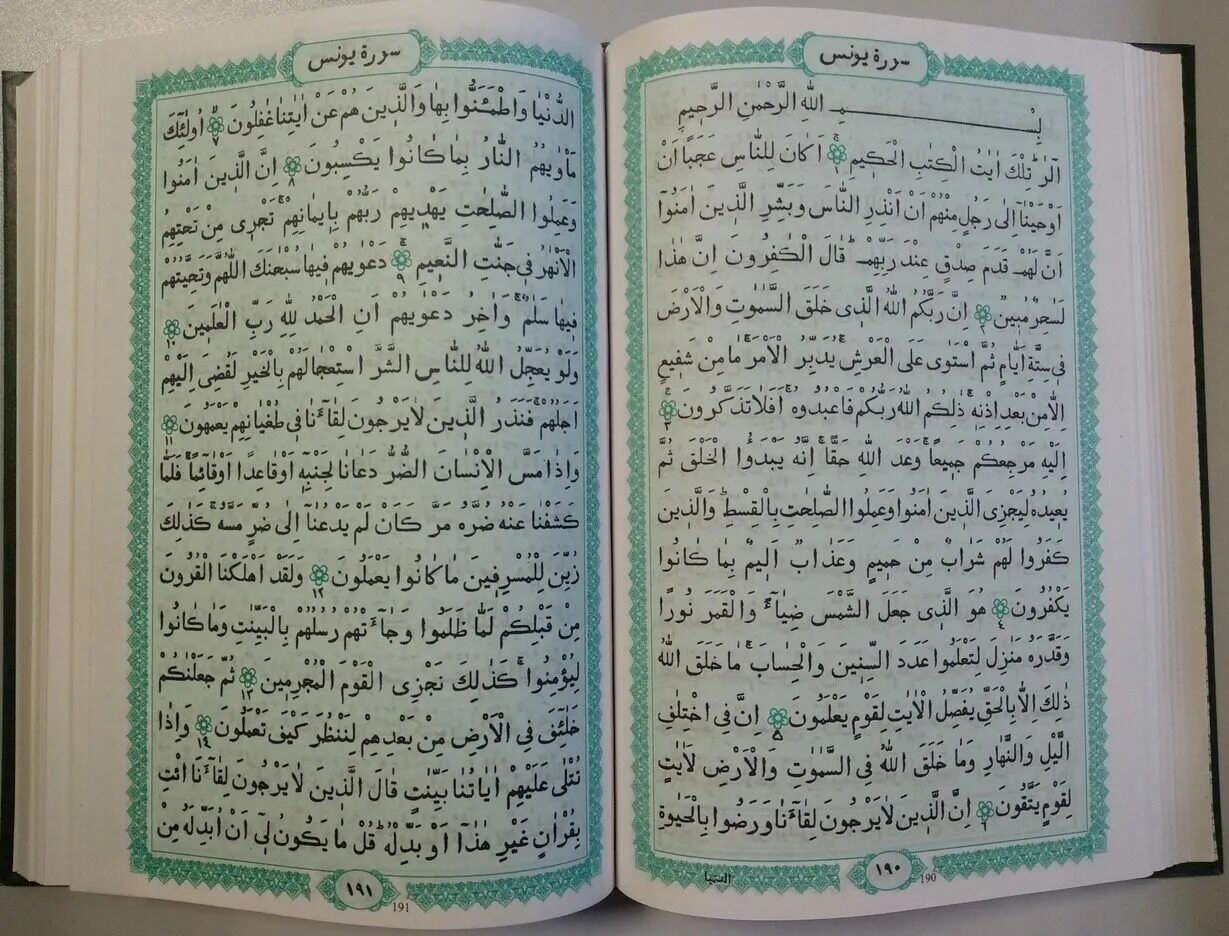 سورة يونس
بسم الله الرَّحْمٰنِ الرَّحٖيمِ
الٓرٰ تِلْكَ اٰيَاتُ الْكِتَابِ الْحَكٖيمِ ١ اَكَانَ لِلنَّاسِ عَجَبًا اَنْ
اَوْحَيْنَٓا اِلٰى رَجُلٍ مِنْهُمْ اَنْ اَنْذِرِ النَّاسَ وَبَشِّرِ الَّذٖينَ اٰمَنُٓوا
اَنَّ لَهُمْ قَدَمَ صِدْقٍ عِنْدَ رَبِّهِمْ قَالَ الْكَافِرُونَ اِنَّ هٰذَا
لَسَاحِرٌ مُبٖينٌ ٢ اِنَّ رَبَّكُمُ اللّٰهُ الَّذٖى خَلَقَ السَّمٰوَاتِ وَالْاَرْضَ
فٖى سِتَّةِ اَيَّامٍ ثُمَّ اسْتَوٰى عَلَى الْعَرْشِ يُدَبِّرُ الْاَمْرَ مَا مِنْ شَفٖيعٍ
اِلَّا مِنْ بَعْدِ اِذْنِهٖ ذٰلِكُمُ اللّٰهُ رَبُّكُمْ فَاعْبُدُوهُ اَفَلَا تَذَكَّرُونَ ٣
اِلَيْهِ مَرْجِعُكُمْ جَمٖيعًا وَعْدَ اللّٰهِ حَقًّا اِنَّهُ يَبْدَؤُا الْخَلْقَ ثُمَّ
يُعٖيدُهُ لِيَجْزِىَ الَّذٖينَ اٰمَنُوا وَعَمِلُوا الصَّالِحَاتِ بِالْقِسْطِ وَالَّذٖينَ
كَفَرُوا لَهُمْ شَرَابٌ مِنْ حَمٖيمٍ وَعَذَابٌ اَلٖيمٌ بِمَا كَانُوا
يَكْفُرُونَ ٤ هُوَ الَّذٖى جَعَلَ الشَّمْسَ ضِيَٓاءً وَالْقَمَرَ نُورًا
وَقَدَّرَهُ مَنَازِلَ لِتَعْلَمُوا عَدَدَ السِّنٖينَ وَالْحِسَابَ مَا خَلَقَ اللّٰهُ
ذٰلِكَ اِلَّا بِالْحَقِّ يُفَصِّلُ الْاٰيَاتِ لِقَوْمٍ يَعْلَمُونَ ٥ اِنَّ فِى اخْتِلَافِ
الَّيْلِ وَالنَّهَارِ وَمَا خَلَقَ اللّٰهُ فِى السَّمٰوَاتِ وَالْاَرْضِ لَاٰيَاتٍ
لِقَوْمٍ يَتَّقُونَ ٦ اِنَّ الَّذٖينَ لَا يَرْجُونَ لِقَٓاءَنَا وَرَضُوا بِالْحَيٰوةِ
الدنيا
١٩٠
190
سورة يونس
الدُّنْيَا وَاطْمَاَنُّوا بِهَا وَالَّذٖينَ هُمْ عَنْ اٰيَاتِنَا غَافِلُونَ ٧ اُولٰٓئِكَ
مَاْوٰيهُمُ النَّارُ بِمَا كَانُوا يَكْسِبُونَ ٨ اِنَّ الَّذٖينَ اٰمَنُوا
وَعَمِلُوا الصَّالِحَاتِ يَهْدٖيهِمْ رَبُّهُمْ بِاٖيمَانِهِمْ تَجْرٖى مِنْ تَحْتِهِمُ
الْاَنْهَارُ فٖى جَنَّاتِ النَّعٖيمِ ٩ دَعْوٰيهُمْ فٖيهَا سُبْحَانَكَ اللّٰهُمَّ وَتَحِيَّتُهُمْ
فٖيهَا سَلَامٌ وَاٰخِرُ دَعْوٰيهُمْ اَنِ الْحَمْدُ لِلّٰهِ رَبِّ الْعَالَمٖينَ ١٠
وَلَوْ يُعَجِّلُ اللّٰهُ لِلنَّاسِ الشَّرَّ اسْتِعْجَالَهُمْ بِالْخَيْرِ لَقُضِىَ اِلَيْهِمْ
اَجَلُهُمْ فَنَذَرُ الَّذٖينَ لَا يَرْجُونَ لِقَٓاءَنَا فٖى طُغْيَانِهِمْ يَعْمَهُونَ ١١
وَاِذَا مَسَّ الْاِنْسَانَ الضُّرُّ دَعَانَا لِجَنْبِهٖٓ اَوْ قَاعِدًا اَوْ قَٓائِمًا فَلَمَّا
كَشَفْنَا عَنْهُ ضُرَّهُ مَرَّ كَاَنْ لَمْ يَدْعُنَٓا اِلٰى ضُرٍّ مَسَّهُ كَذٰلِكَ
زُيِّنَ لِلْمُسْرِفٖينَ مَا كَانُوا يَعْمَلُونَ ١٢ وَلَقَدْ اَهْلَكْنَا الْقُرُونَ
مِنْ قَبْلِكُمْ لَمَّا ظَلَمُوا وَجَٓاءَتْهُمْ رُسُلُهُمْ بِالْبَيِّنَاتِ وَمَا كَانُوا
لِيُؤْمِنُوا كَذٰلِكَ نَجْزِى الْقَوْمَ الْمُجْرِمٖينَ ١٣ ثُمَّ جَعَلْنَاكُمْ
خَلَٓائِفَ فِى الْاَرْضِ مِنْ بَعْدِهِمْ لِنَنْظُرَ كَيْفَ تَعْمَلُونَ ١٤ وَاِذَا
تُتْلٰى عَلَيْهِمْ اٰيَاتُنَا بَيِّنَاتٍ قَالَ الَّذٖينَ لَا يَرْجُونَ لِقَٓاءَنَا ائْتِ
بِقُرْاٰنٍ غَيْرِ هٰذَٓا اَوْ بَدِّلْهُ قُلْ مَا يَكُونُ لٖٓى اَنْ اُبَدِّلَهُ مِنْ
١٩١
191